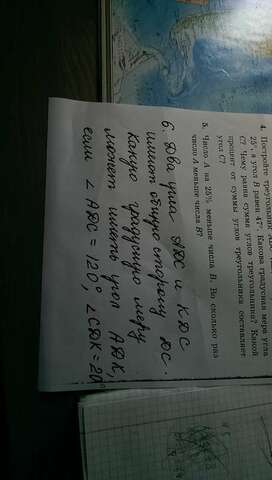 4. Постройте треугольник ABC,
25°, а угол B равен 47°. Какова градусная мера угла
C? Чему равна сумма углов треугольника? Какой
процент от суммы углов треугольника составляет
угол C?
5. Число A на 25% меньше числа B. Во сколько раз
число A меньше числа B?
6. Два угла АДС и КДС
имеют общую сторону ДС.
Какую градусную меру
может иметь угол АДК,
если ∠АДС = 120°, ∠СДК = 20°